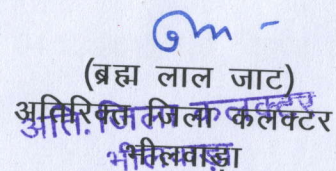 (ब्रह्म लाल जाट)
अतिरिक्त जिला कलक्टर
भीलवाड़ा
अति. जिला कलक्टर